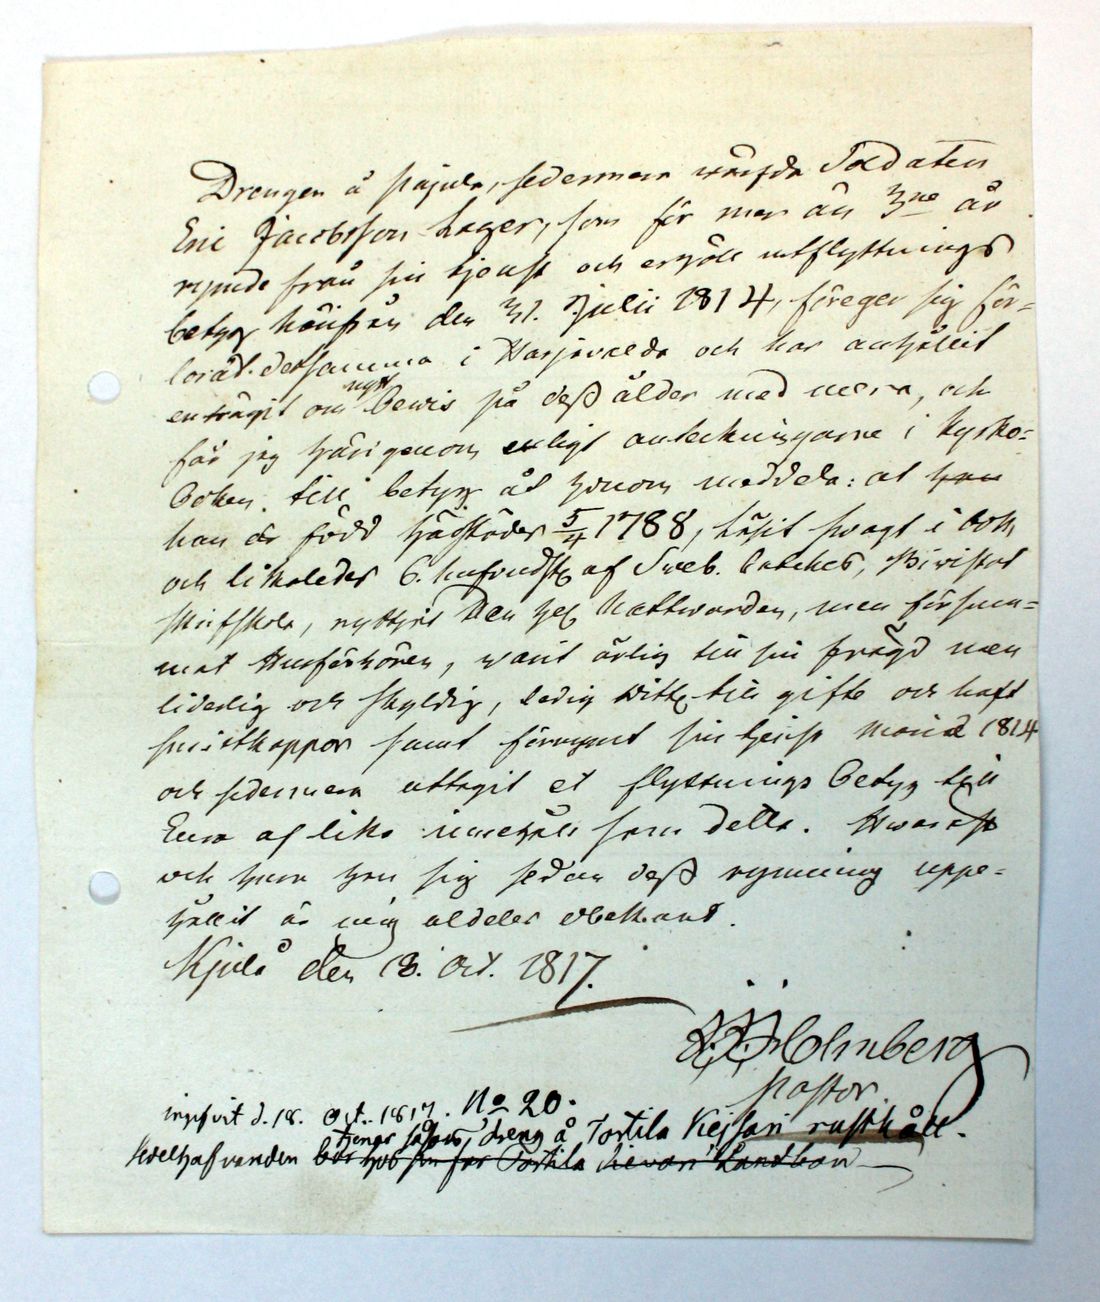 Drengen å Pajula, sedermera värfda Soldaten
Eric Jacobsson Lager, som för mer än 3ne år
rymde från sin tjenst och erhöll utflyttnings
betyg härifrån den 31. Julii 1814, föreger sig för-
lorat detsamma i Harjavalda och har anhållit
enträgit om nytt bewis på dess ålder med mera, och
får jag härigenom enligt anteckningarne i Kyrko-
boken till betyg åt honom meddela: at han
han är född härstädes 5/4 1788, läsit swagt i bok
och likaledes af Sveb. Catches, bewistat
skriftskola, nyttjat Den hel. Nattwarden, men försum-
mat Husförhören, warit ärlig till sin frägd men
liderlig och skyldig, ledig till gifte och haft
smittkoppor samt förrymt sin tjenst 1814
och sedermera uttagit et flyttnings betyg till
Eura af lika innehåll som detta. Hwaräst
och huru han sig sedan dess rymning uppe-
hållit är mig aldeles obekant.
Kjulå den 18. Oct. 1817.
Holmberg
Pastor.
ingifvit d. 18. Oct. 1817. No 20.
tjenar såsom dreng å Torttila Kejsari rusthåll.
Innehafvanden bor hos sin far Torttila Landbon